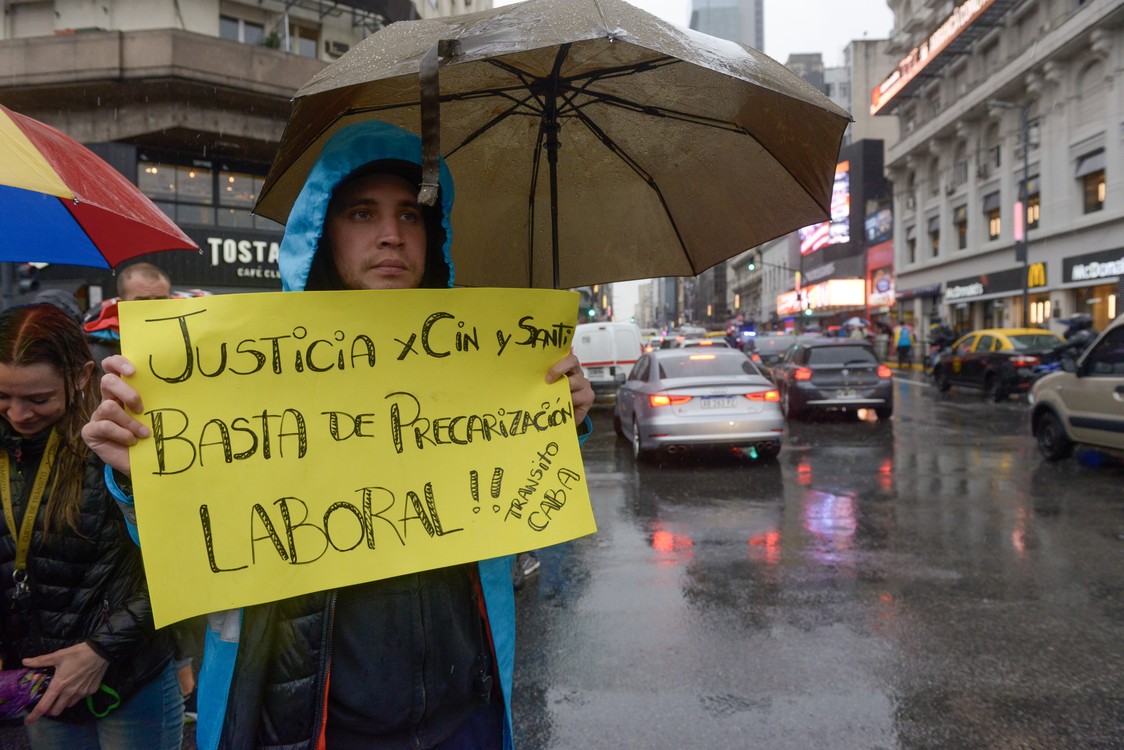 TOSTA
CAFÉ CLU
JUSTICIA x CIN y SANTI
BASTA DE PRECARIZACIÓN
LABORAL !!
TRANSITO
CABA
McDonald's